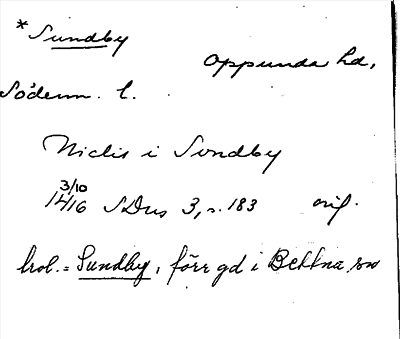 * Sundby
Oppunda hd,
Söderm. l.
Niclis i Svndby
3/10
1416 SDns 3, s. 183 orig.
trol. = Sundby, förr gd i Bettna sn